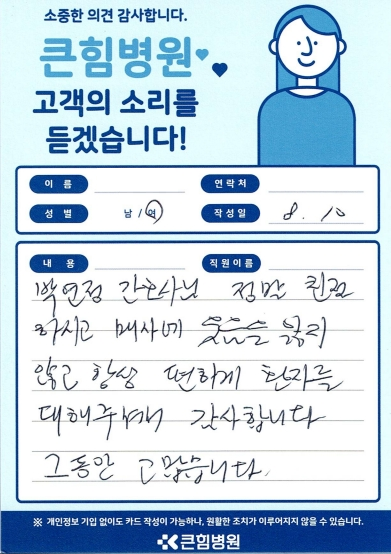 소중한 의견 감사합니다.
큰힘병원
고객의 소리를
듣겠습니다!
이 름
연락처
성 별 남 / 여
작성일 8. 10
내 용
직원이름
박연정 간호사님 정말 친절
하시고 매사에 웃음을 잃지
않고 항상 편하게 환자를
대해주셔서 감사합니다
그동안 고맙습니다.
※ 개인정보 기입 없이도 카드 작성이 가능하나, 원활한 조치가 이루어지지 않을 수 있습니다.
큰힘병원